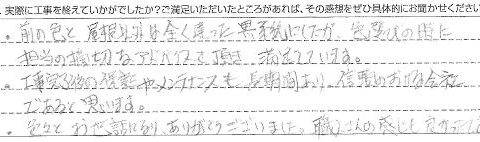 実際に工事を終えていかがでしたか？ご満足いただいたところがあれば、その感想をぜひ具体的にお聞かせください
・前の色と屋根以外は全く違った黒系統にしたが、色選びの時に
担当の親切なアドバイスを頂き、満足しています。
・工事完了後の保証やメンテナンスも長期間あり、信頼のおける会社
であると思います。
・色々とお世話になり、ありがとうございました。職人さんの感じも良かったし